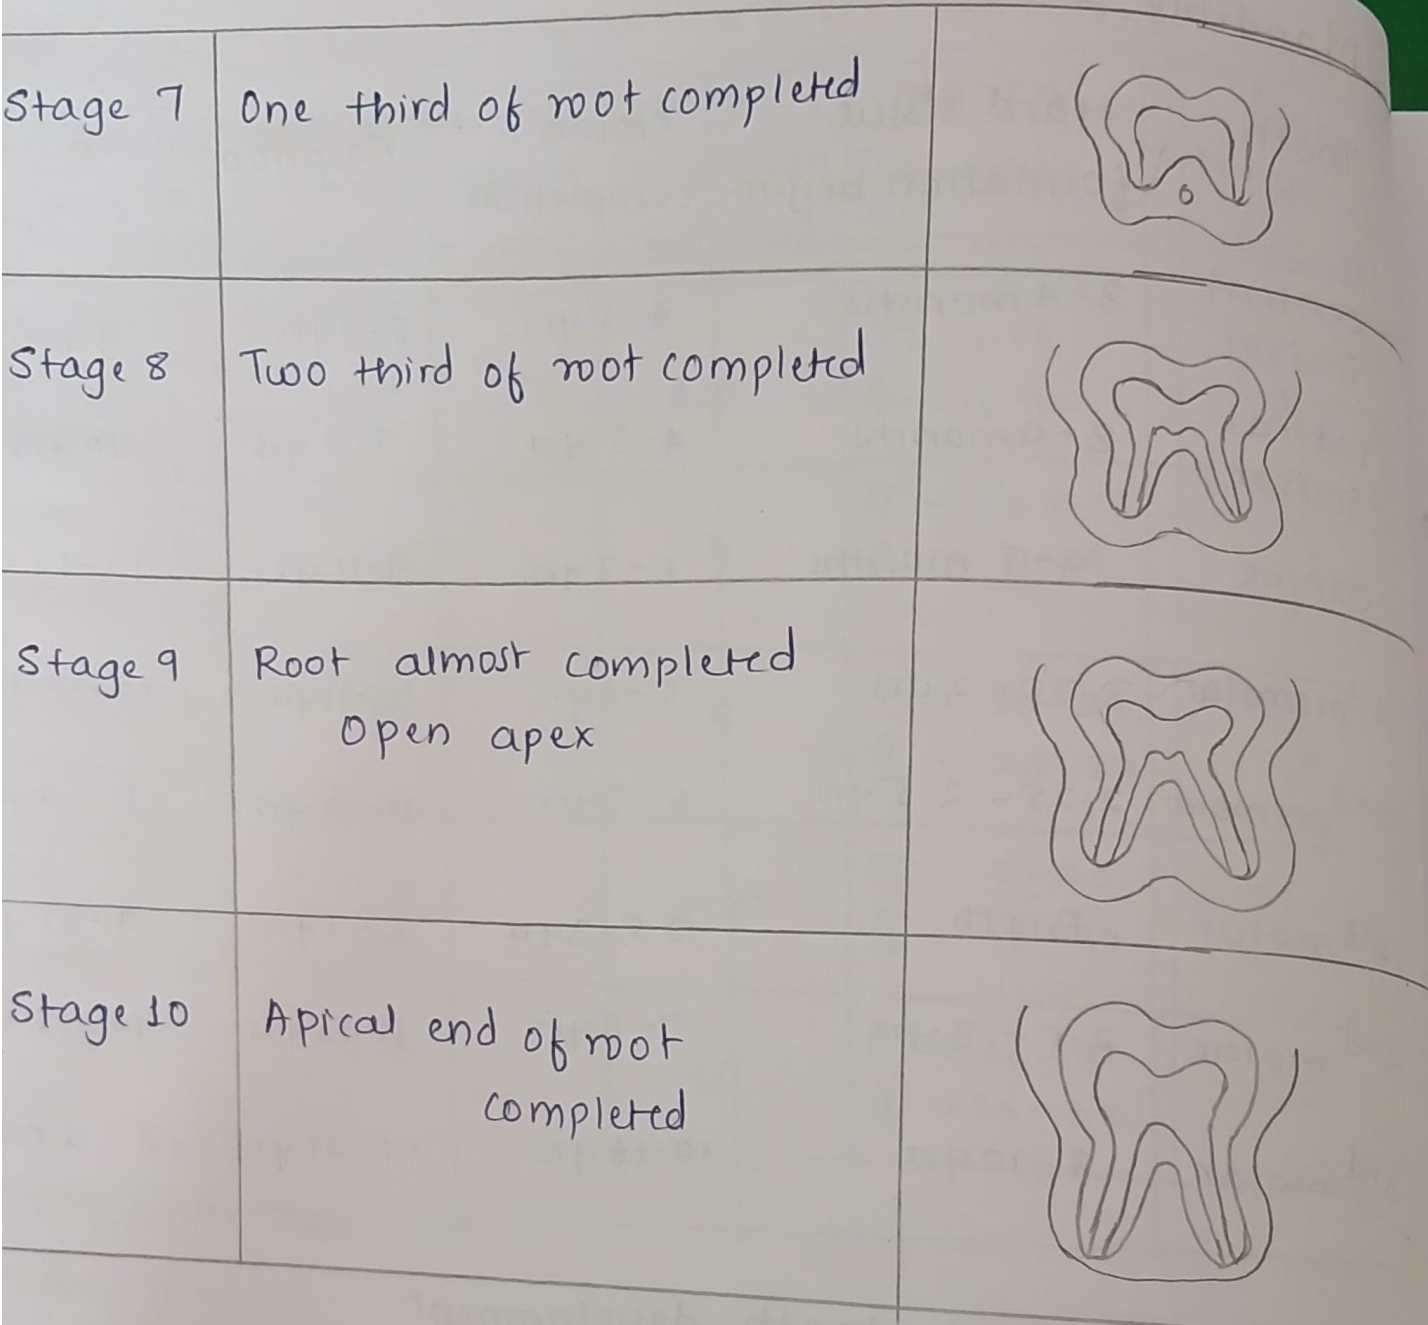 Stage 7 One third of root completed
Stage 8 Two third of root completed
Stage 9 Root almost completed
Open apex
Stage 10 Apical end of root
completed